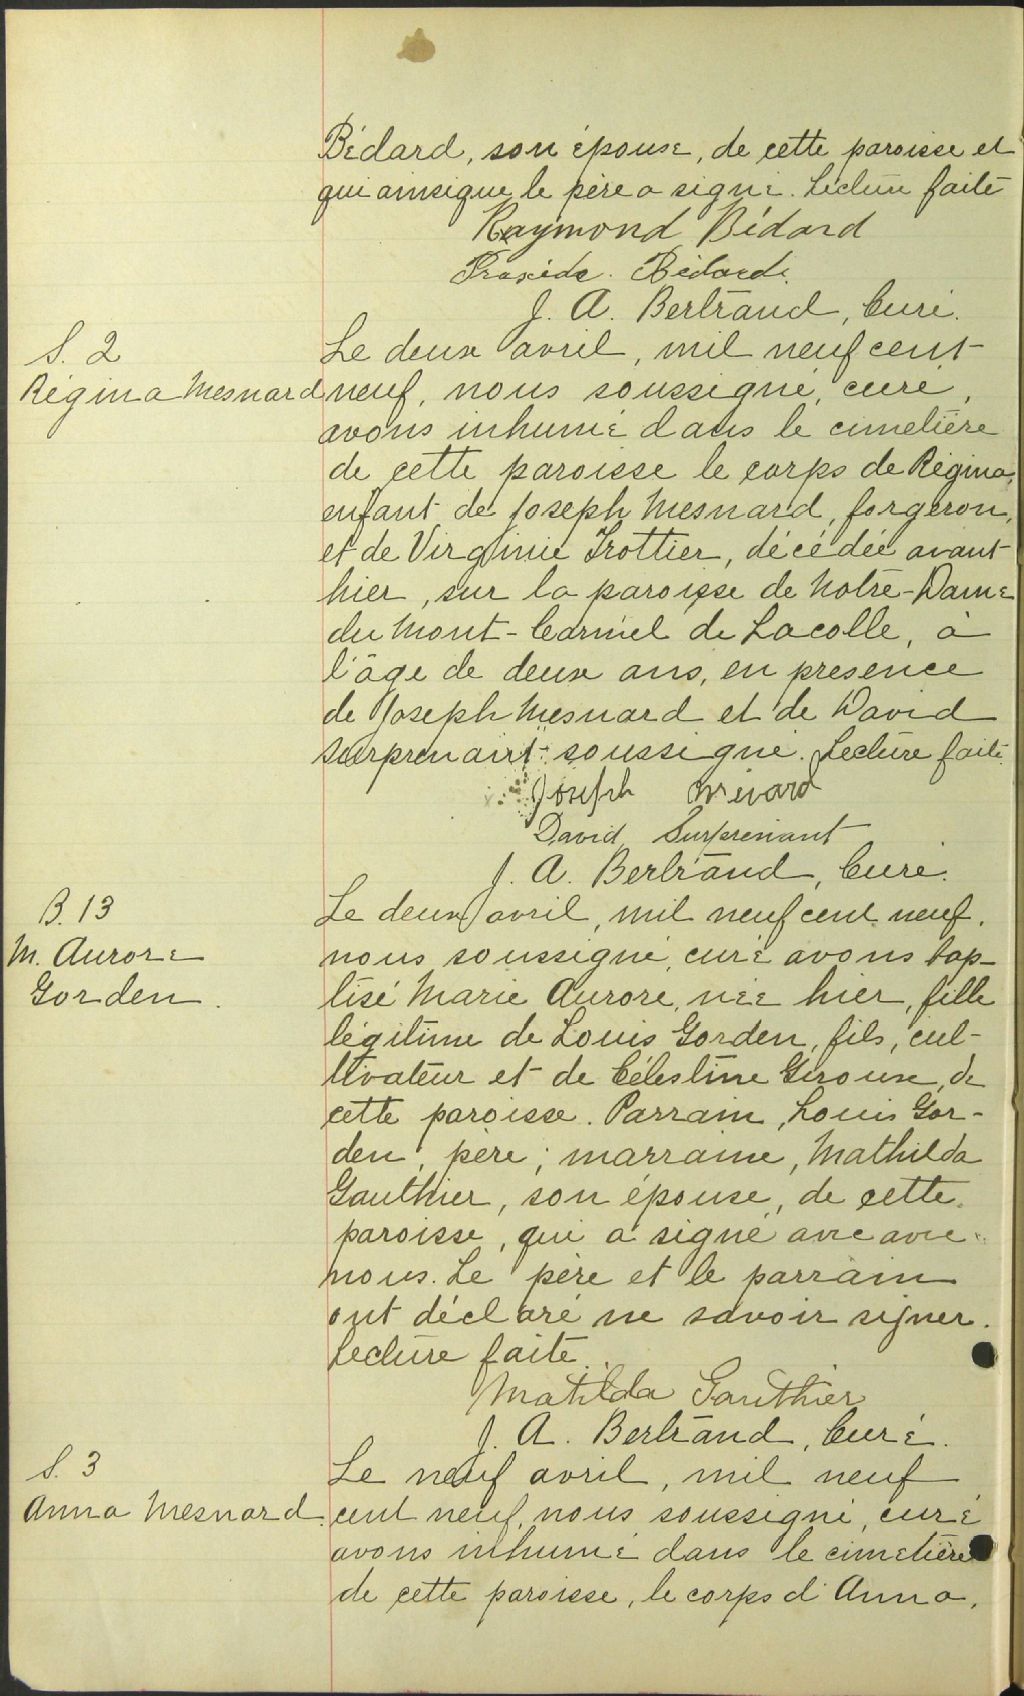 Bédard, son épouse, de cette paroisse et
qui ainsique le père a signé. Lecture faite
Raymond Bédard
Praxède. Bédard.
J. A. Bertrand, Curé.
S. 2
Régina Mesnard
Le deux avril, mil neuf cent
neuf, nous soussigné, curé,
avons inhumé dans le cimetière
de cette paroisse le corps de Régina,
enfant de Joseph Mesnard, forgeron,
et de Virginie Trottier, décédée avant
hier, sur la paroisse de Notre-Dame
du Mont-Carmel de Lacolle, à
l'âge de deux ans, en presence
de Joseph Mesnard et de David
Surprenant soussigné. Lecture faite.
Joseph Ménard
David Surprenant
J. A. Bertrand, Curé.
B. 13
M. Aurore
Gorden.
Le deux avril, mil neuf cent neuf,
nous soussigné, curé avons bap-
tisé Marie Aurore, née hier, fille
légitime de Louis Gorden, fils, cul-
tivateur et de Célestine Giroux, de
cette paroisse. Parrain, Louis Gor-
den, père; marraine, Mathilda
Gauthier, son épouse, de cette
paroisse, qui a signé avec avec
nous. Le père et le parrain
ont déclaré ne savoir signer.
Lecture faite.
Matilda Gauthier
J. A. Bertrand, Curé.
S. 3
Anna Mesnard.
Le neuf avril, mil neuf
cent neuf, nous soussigné, curé
avons inhumé dans le cimetière
de cette paroisse, le corps d'Anna,